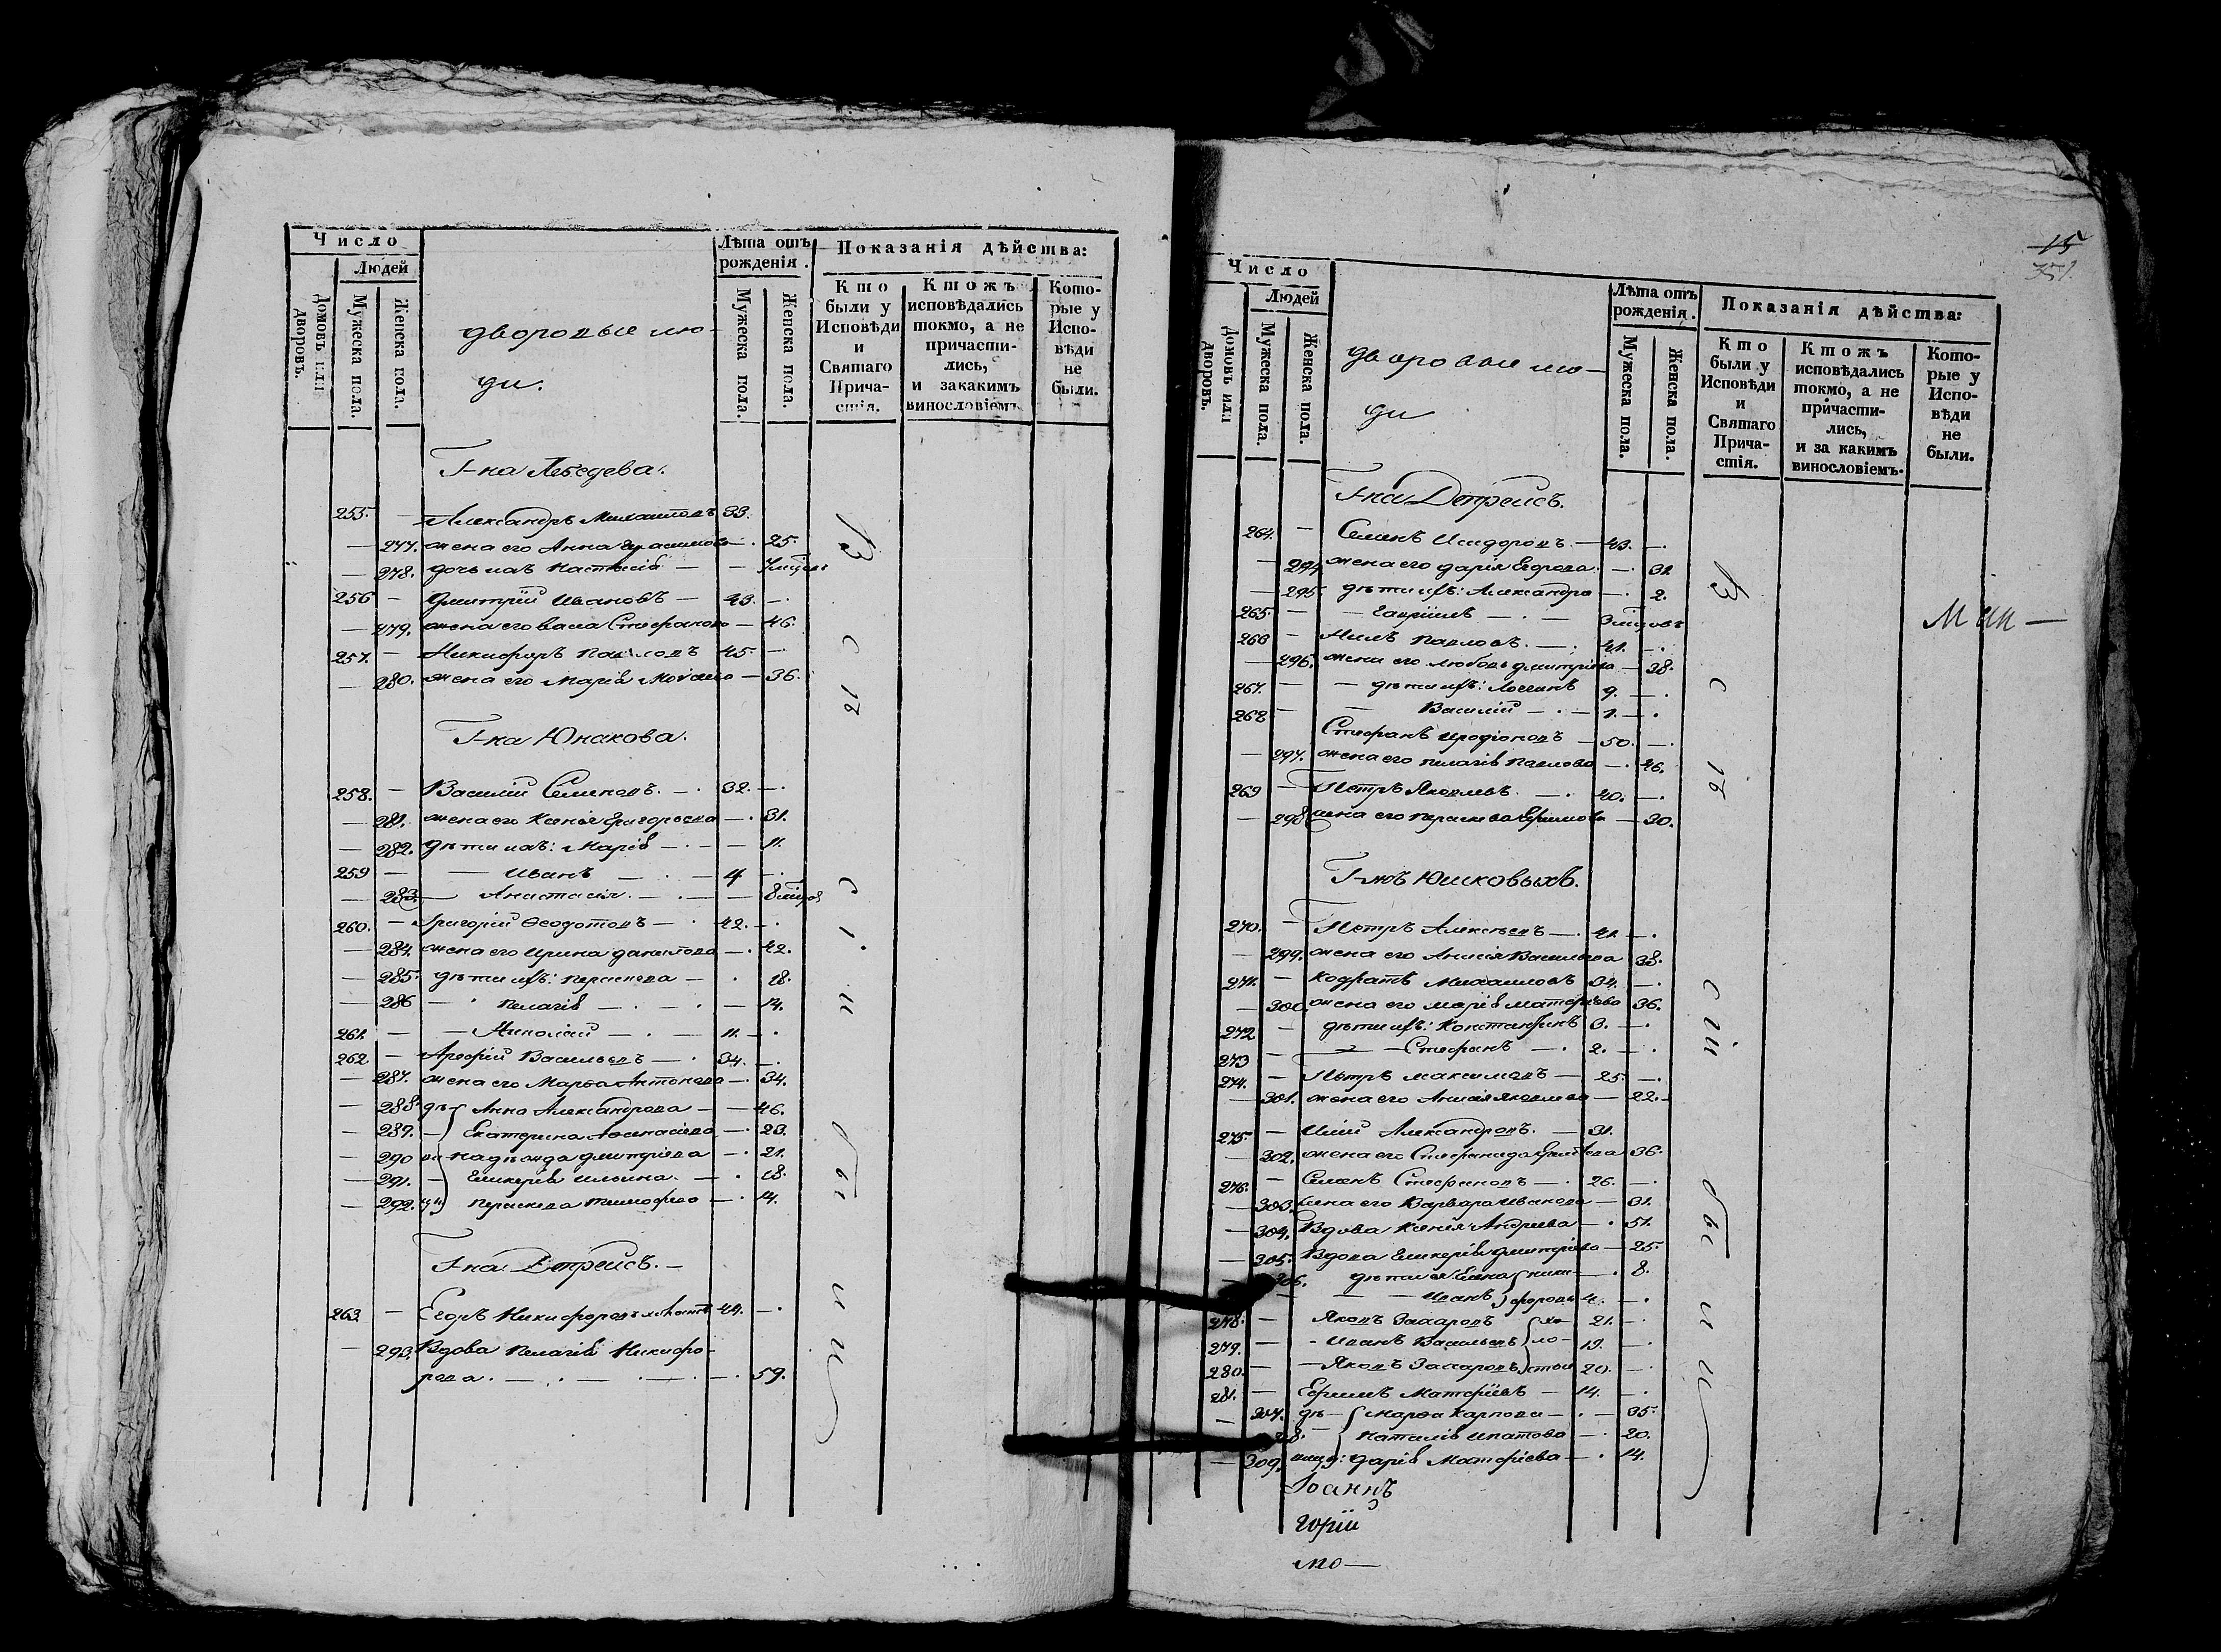 Число
Людей
Домовъ или дворовъ.
Мужеска пола.
Женска пола.
дворовые лю-
ди.
Лѣта отъ рожденія.
Мужеска пола.
Женска пола.
Показанія дѣйства:
Кто были у Исповѣди и Святаго Прича-стія.
Ктожъ исповѣдались токмо, а не причасти-лись, и закакимъ винословіемъ
Кото-рые у Испо-вѣди не были.
Г-на Лебедева.
255. — Александръ 33.
— 277. жена его Анна Герасимова — 25.
— 278. дочь ихъ Настасія — —
256 — Дмитрій Ивановъ — 43. —
— 279. жена его Васса Стефанова — 46.
257. — Никифоръ Павловъ 45. —
— 280. жена его Марія — 36.
Г-на Юнакова.
258. — Василій Семеновъ. — 32. —
— 281. жена его Ксенія Григорьева — 31.
— 282. дѣти ихъ: Марія — — 11.
259 — — Иванъ — 4 —
— 283. — Анастасія. — —
260. — Григорій Ѳеодотовъ — 42. —
— 284. жена его Ирина Данилова — 42.
— 285. дѣти ихъ: Параскева — 18.
— 286 — Пелагія — — 14.
261. — — Николай — — 11. —
262 — Арефій Васильевъ — 34. —
— 287. жена его Марѳа Антонова — 34.
— 288. дѣ- Анна Александрова — — 46.
— 289. — Екатерина Аѳанасіева — 23.
— 290 ви Надѣжда Дмитріева — 21.
— 291. — Гликерія Ильина. — 18.
— 292. цы Параскева Тимофеева — 14.
Г-на Детрейсъ. —
263. — Егоръ Никифоровъ 44. —
— 293. Вдова Пелагія Никифо-
рова. — — — 59.
В
с
ѣ
с
і
и
бы
и
и
15
351.
Число
Людей
Домовъ или дворовъ.
Мужеска пола.
Женска пола.
дворовые лю-
ди
Лѣта отъ рожденія.
Мужеска пола.
Женска пола.
Показанія дѣйства:
Кто были у Исповѣди и Святаго Прича-стія.
Ктожъ исповѣдались токмо, а не причасти-лись, и за какимъ винословіемъ.
Кото-рые у Испо-вѣди не были.
Г-на Детрейсъ.
264. — Семенъ Исидоровъ. — 43. —
— 294 жена его Дарія Егорова. — 31.
— 295 дѣти ихъ: Александра — 2.
265. — — Гавріилъ — —
266 — Нилъ Павловъ. — 41. —
— 296. жена его Любовь Дмитріева — 38.
267. — — дѣти ихъ: Логгинъ 9. —
268 — Василій — 1. —
Стефанъ Иродіоновъ — 50. —
— 297. жена его Пелагія Павлова — 46.
269 — Петръ Яковлевъ. — 40. —
— 298 жена его Параскева Ефимова — 30.
Г-жъ Юшковыхъ.
270. — Петръ Алексѣевъ — 41. —
— 299. жена его Анисія Васильева 38.
271. — Кодратъ Михаиловъ 34. —
— 300. жена его Марія Матфіева 36.
272 — дѣти ихъ: Константинъ 3. —
273 — — Стефанъ — 2. —
274. — Петръ Максимовъ — 25. —
— 301. жена его Анисія Яковлева — 22. —
275. — Илій Александровъ. — 31.
— 302. жена его Стефанида 36.
276. — Семенъ Стефановъ — 26. —
— 303. жена его Варвара Иванова — 31.
— 304. Вдова Ксенія Андреева — 51.
— 305. Вдова Гликерія Дмитріева — 25.
— 306. дѣти ея Елена ники- — 8.
— — Иванъ форовы 4. —
278. — Яковъ Захаровъ хо- 21. —
279. — Иванъ Васильевъ ло- 19. —
280. — Яковъ Захаровъ стые 20. —
281. — Ефимъ Матфіевъ — 14. —
— 307. дѣ- Марѳа Карпова — — 35.
8. — Наталія Ипатова — 20.
— 309. вицы: Дарія Матфіева — 14.
Іоаннъ
мо—
В
с
ѣ
с
ій
бы
и
и